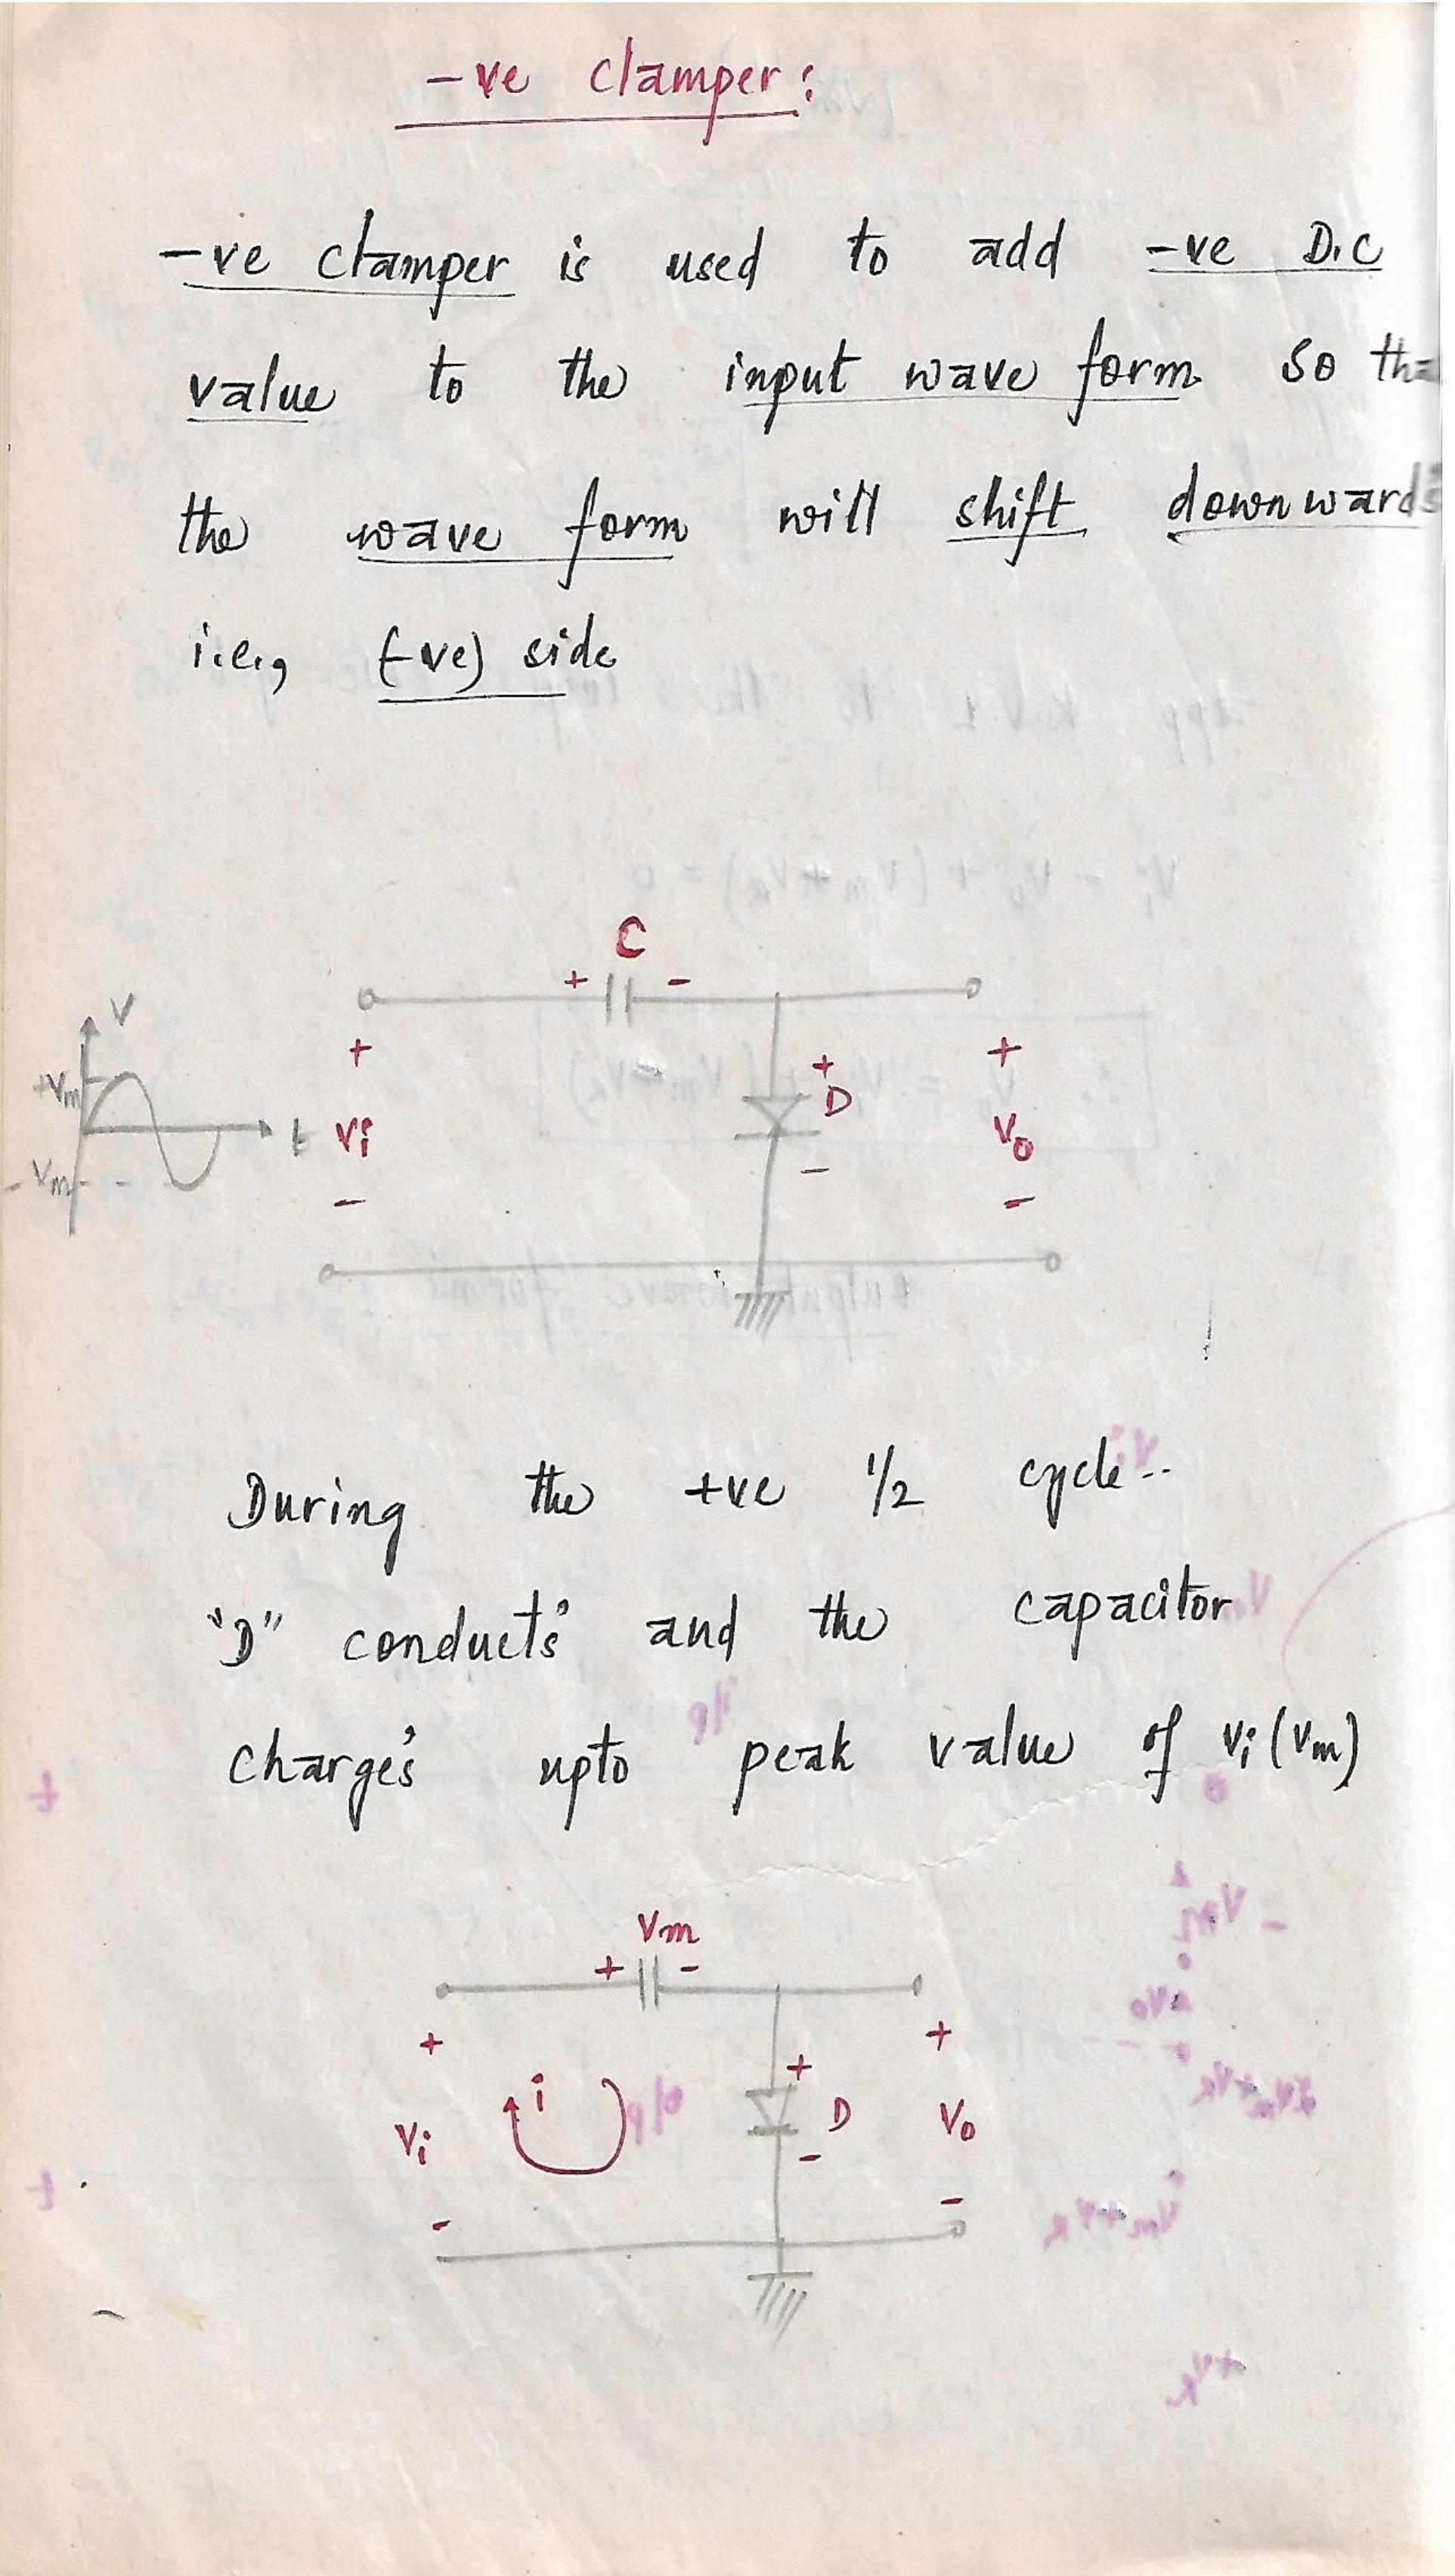 -ve clamper:
-ve clamper is used to add -ve D.C
value to the input wave form so tha
the wave form will shift downwards
i.e., (-ve) side
C
+ -
V
+Vm
t
-Vm
+
Vi
-
+
D
-
+
Vo
-
During the +ve 1/2 cycle..
"D" conduct's and the capacitor
charge's upto peak value of Vi (Vm)
Vm
+ -
+
Vi
-
i
+
D
-
+
Vo
-